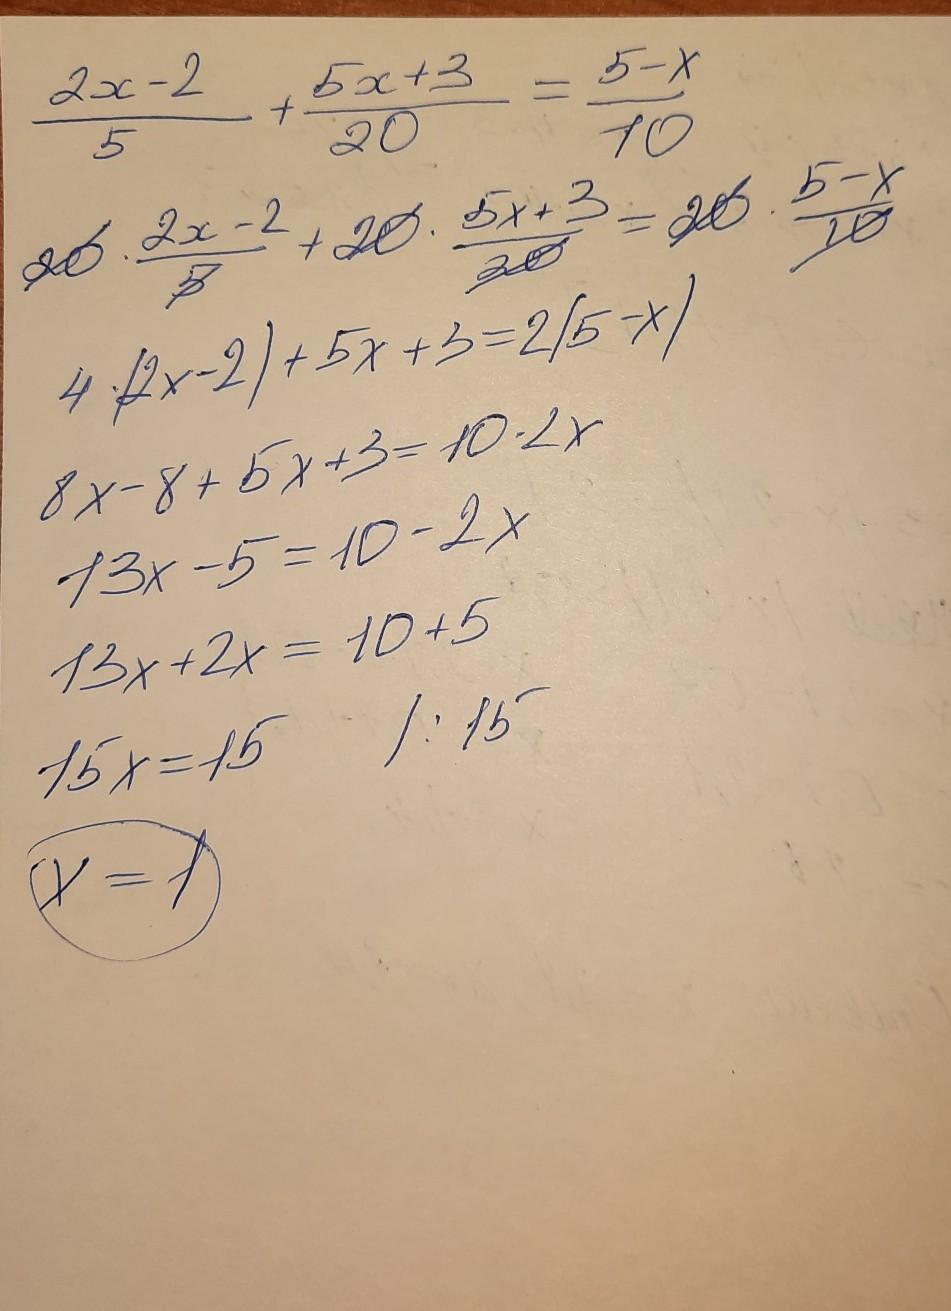 (2x-2)/5 + (5x+3)/20 = (5-x)/10
20 · (2x-2)/5 + 20 · (5x+3)/20 = 20 · (5-x)/10
4·(2x-2)+5x+3=2(5-x)
8x-8+5x+3=10-2x
13x-5=10-2x
13x+2x=10+5
15x=15 /:15
x=1